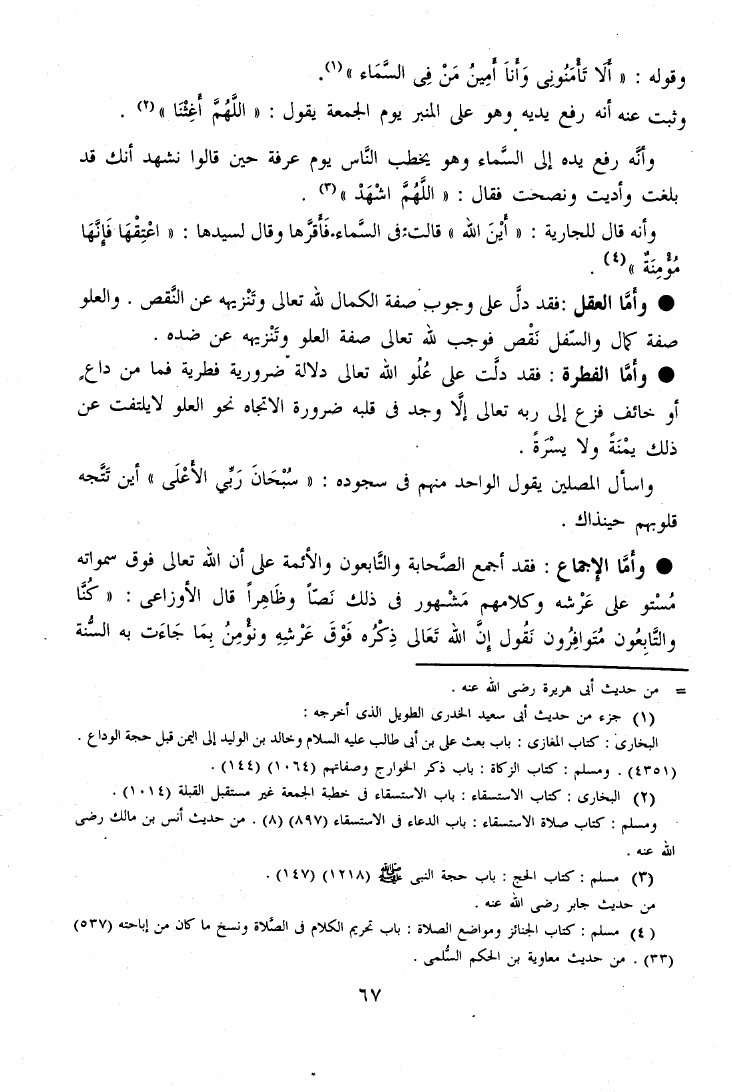 وقوله : « أَلَا تَأْمَنُونِى وَأَنَا أَمِينُ مَنْ فِى السَّمَاء »(١).
وثبت عنه أنه رفع يديه وهو على المنبر يوم الجمعة يقول : « اللَّهُمَّ أَغِثْنَا »(٢) .
وأنَّه رفع يده إلى السَّماء وهو يخطب النَّاس يوم عرفة حين قالوا نشهد أنك قد
بلغت وأديت ونصحت فقال : « اللَّهُمَّ اشْهَدْ »(٣) .
وأنه قال للجارية : « أَيْنَ الله » قالت: فى السَّماء. فَأَقرَّها وقال لسيدها : « اعْتِقْهَا فَإِنَّهَا
مُؤْمِنَةٌ »(٤) .
● وأمَّا العقل : فقد دلَّ على وجوب صفة الكمال لله تعالى وتَنْزيهه عن النَّقص . والعلو
صفة كمال والسّفل نَقْص فوجب لله تعالى صفة العلو وتَنْزيهه عن ضده .
● وأمَّا الفطرة : فقد دلَّت على عُلُو الله تعالى دلالة ضرورية فطرية فما من داعٍ
أو خائف فزع إلى ربه تعالى إلَّا وجد فى قلبه ضرورة الاتجاه نحو العلو لايلتفت عن
ذلك يمْنَةً ولا يسْرَةً .
واسأل المصلين يقول الواحد منهم فى سجوده : « سُبْحَانَ رَبِّي الأَعْلَى » أين تَتَّجه
قلوبهم حينذاك .
● وأمَّا الإجماع : فقد أجمع الصَّحابة والتَّابعون والأئمة على أن الله تعالى فوق سمواته
مُسْتو على عَرْشه وكلامهم مَشْهور فى ذلك نَصّاً وظَاهِراً قال الأوزاعى : « كُنَّا
والتَّابِعُون مُتَوافِرُون نَقُول إنَّ الله تَعَالى ذِكْرُه فَوْقَ عَرْشِهِ ونؤْمِنُ بِمَا جَاءَت به السُّنة
= من حديث أبى هريرة رضى الله عنه .
(١) جزء من حديث أبى سعيد الخدرى الطويل الذى أخرجه :
البخارى : كتاب المغازى : باب بعث على بن أبى طالب عليه السلام وخالد بن الوليد إلى اليمن قبل حجة الوداع .
(٤٣٥١) . ومسلم : كتاب الزكاة : باب ذكر الخوارج وصفاتهم (١٠٦٤) (١٤٤) .
(٢) البخارى : كتاب الاستسقاء : باب الاستسقاء فى خطبة الجمعة غير مستقبل القبلة (١٠١٤) .
ومسلم : كتاب صلاة الاستسقاء : باب الدعاء فى الاستسقاء (٨٩٧) (٨) . من حديث أنس بن مالك رضى
الله عنه .
(٣) مسلم : كتاب الحج : باب حجة النبى ﷺ (١٢١٨) (١٤٧) .
من حديث جابر رضى الله عنه .
(٤) مسلم : كتاب الجنائز ومواضع الصلاة : باب تحريم الكلام فى الصَّلاة ونسخ ما كان من إباحته (٥٣٧)
(٣٣) . من حديث معاوية بن الحكم السُّلمى .
٦٧